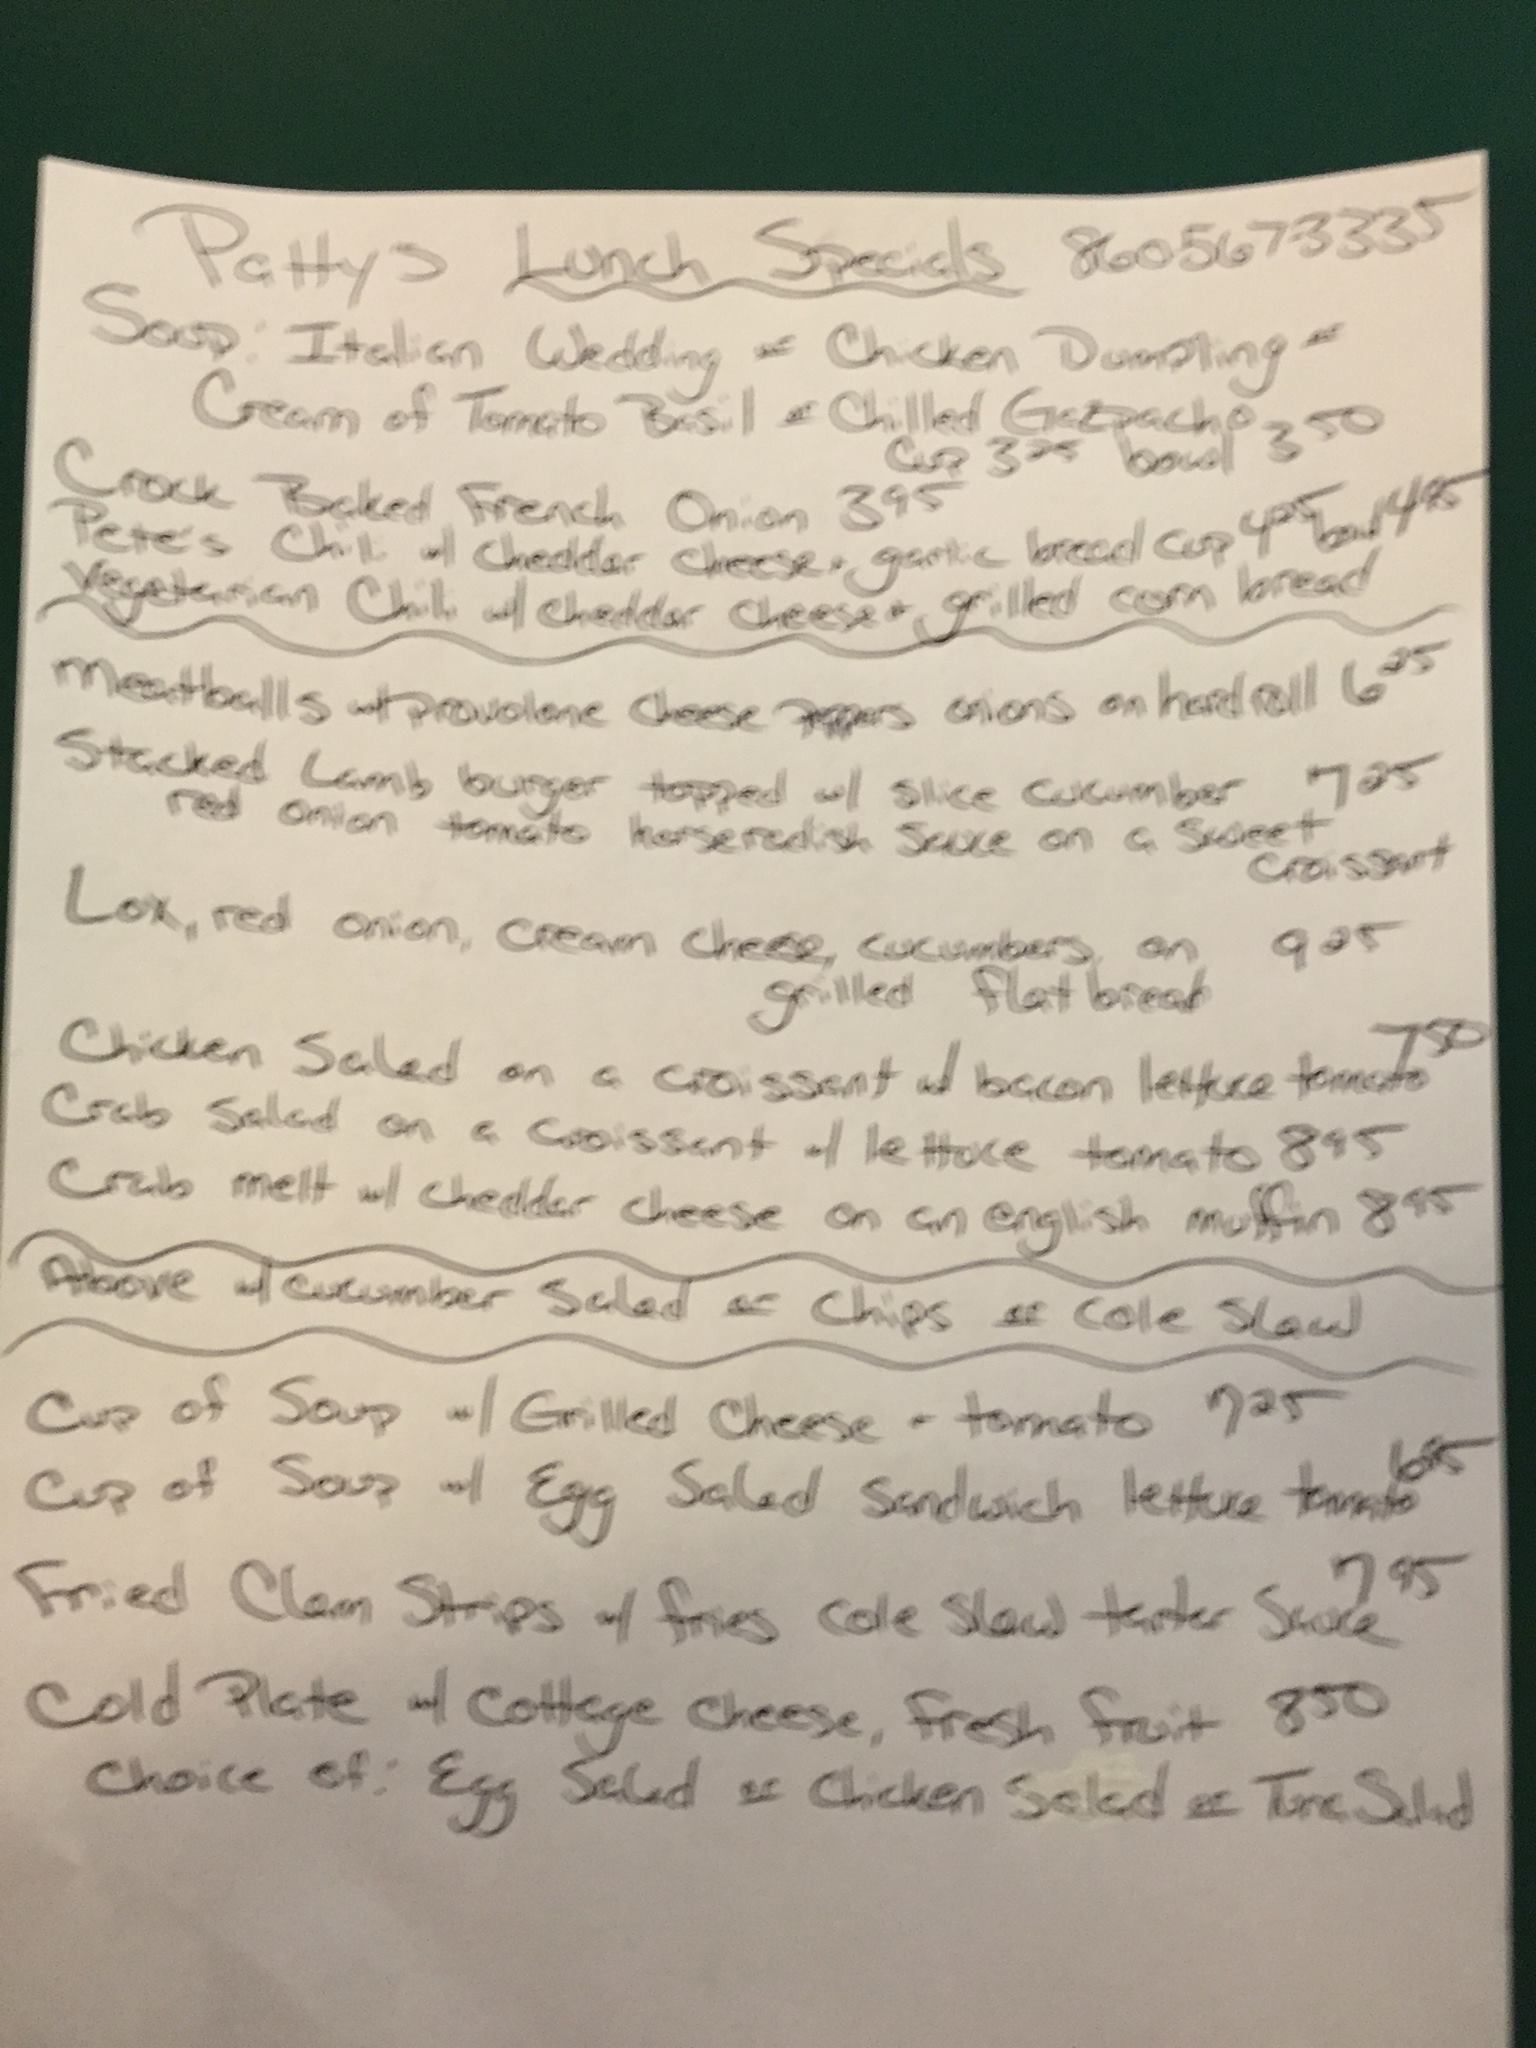 Pattys Lunch Specials 8605673335
Soup: Italian Wedding or Chicken Dumpling or
Cream of Tomato Basil or Chilled Gazpacho
Cup 3 25 bowl 3 50
Crock Baked French Onion 3 95
Pete's Chili w/ cheddar cheese + garlic bread cup 4 25 bowl 4 95
Vegetarian Chili w/ cheddar cheese + grilled corn bread
Meatballs w/ provolone cheese peppers onions on hard roll 6 25
Stacked Lamb burger topped w/ slice cucumber 7 25
red onion tomato horseradish sauce on a sweet
croissant
Lox, red onion, cream cheese, cucumbers, on 9 25
grilled flat bread
7 50
Chicken Salad on a croissant w/ bacon lettuce tomato
Crab Salad on a croissant w/ lettuce tomato 8 95
Crab melt w/ cheddar cheese on an english muffin 8 95
Above w/ cucumber salad or Chips or Cole Slaw
Cup of Soup w/ Grilled Cheese + tomato 7 25
Cup of Soup w/ Egg Salad Sandwich lettuce tomato
Fried Clam Strips w/ fries cole slaw tarter Sauce 7 95
Cold Plate w/ Cottage cheese, Fresh fruit 8 50
Choice of: Egg Salad or Chicken Salad or Tuna Salad